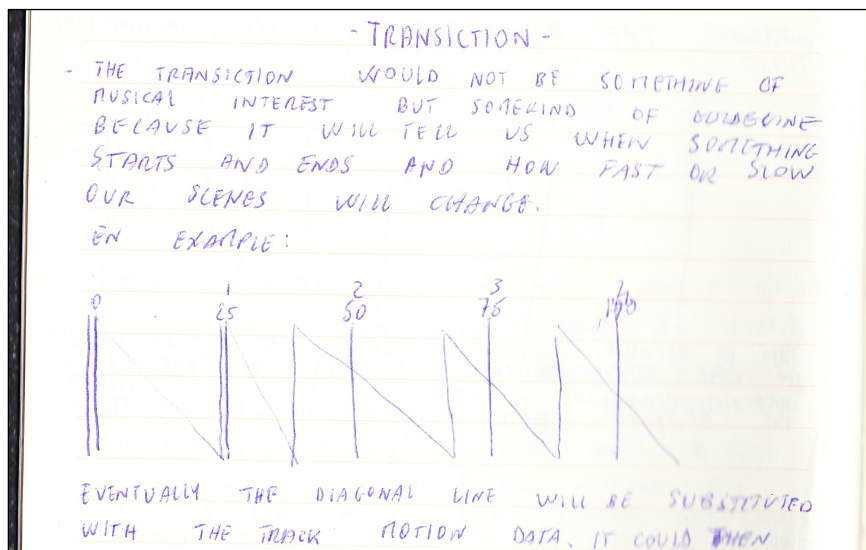 - TRANSICTION -
- THE TRANSICTION WOULD NOT BE SOMETHING OF
MUSICAL INTEREST BUT SOMEKIND OF GUIDELINE
BECAUSE IT WILL TELL US WHEN SOMETHING
STARTS AND ENDS AND HOW FAST OR SLOW
OUR SCENES WILL CHANGE.
EN EXAMPLE:
1 2 3
0 25 50 75 100
EVENTUALLY THE DIAGONAL LINE WILL BE SUBSTITUTED
WITH THE TRACK MOTION DATA. IT COULD THEN